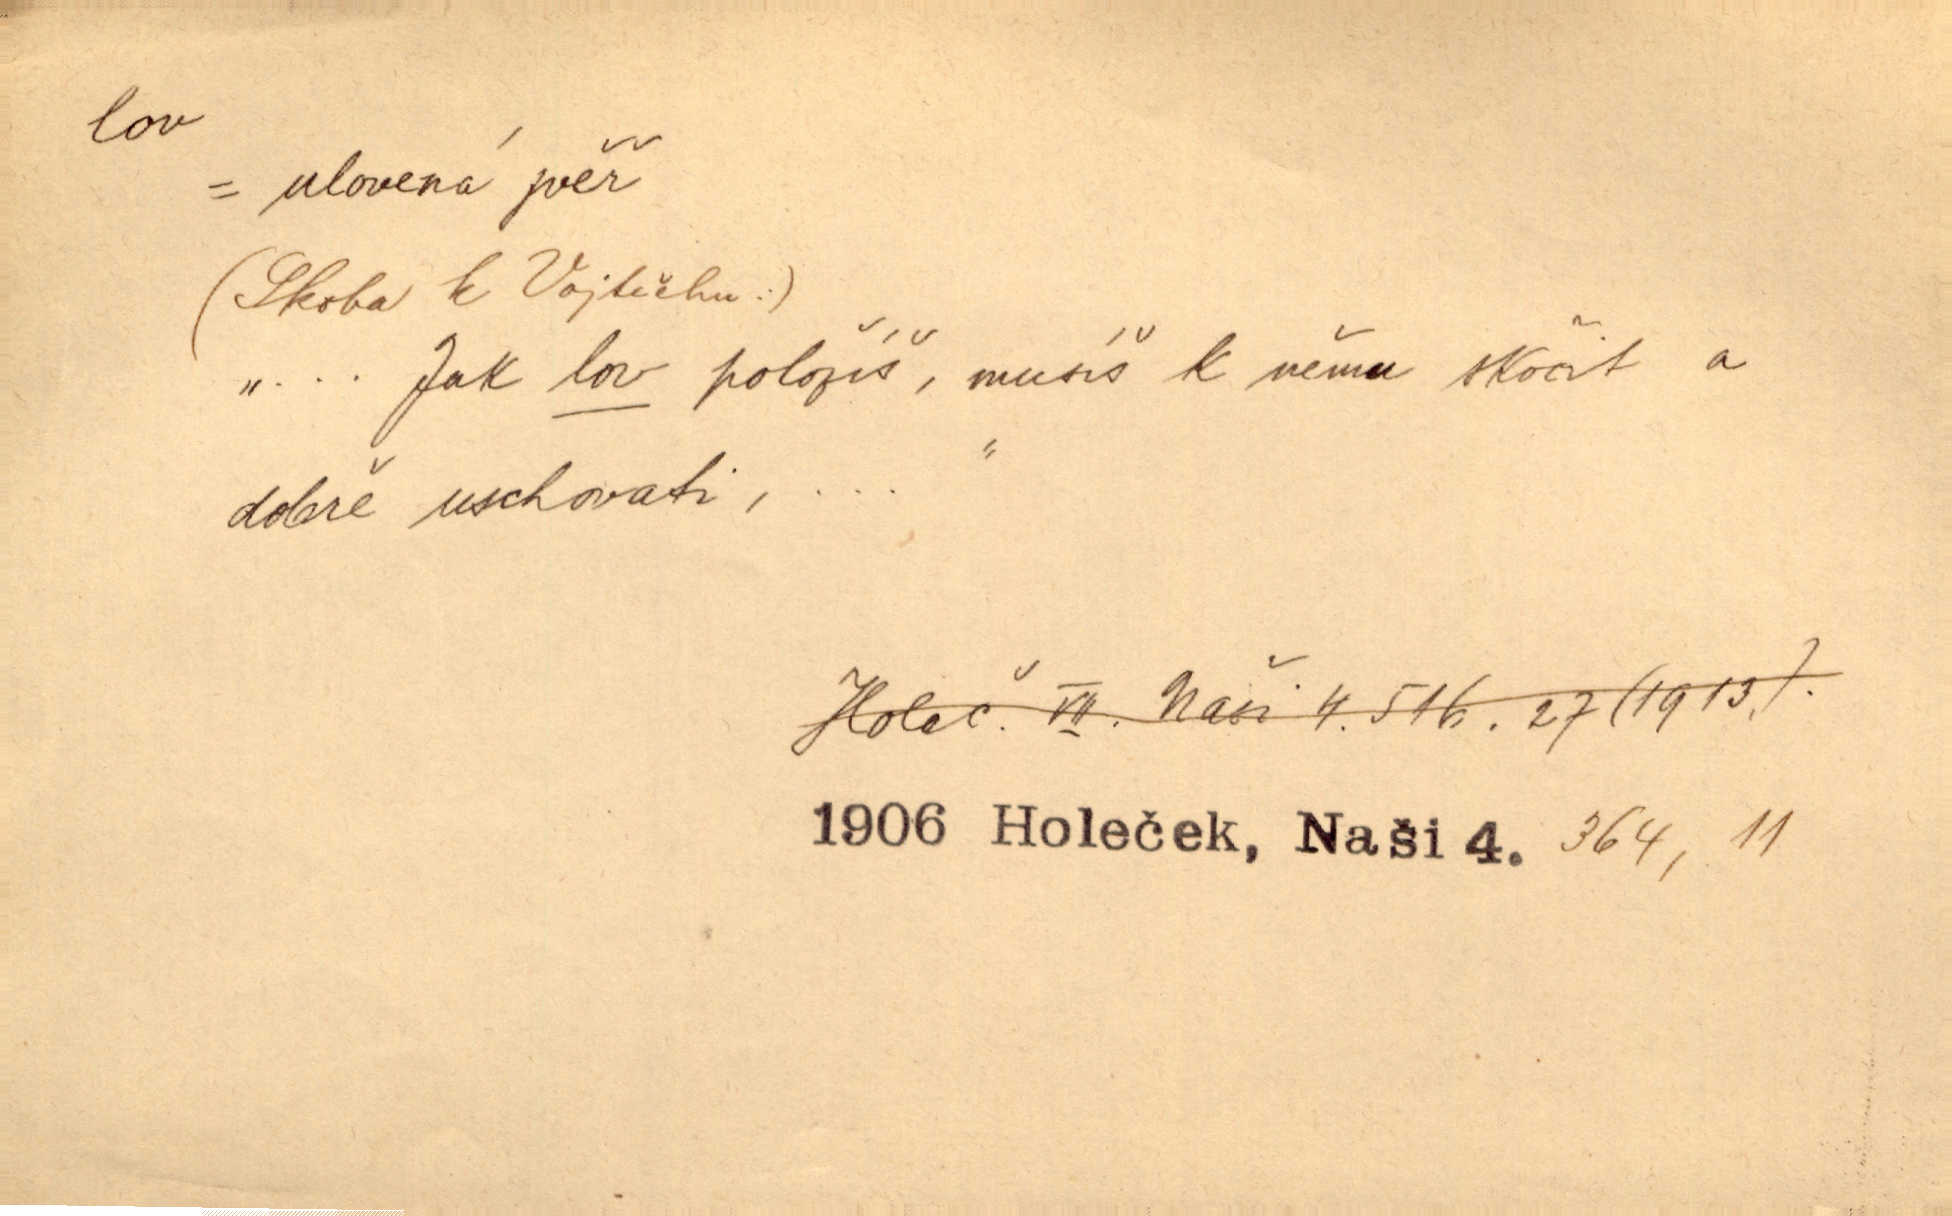 lov
= ulovená zvěř
(Skoba k Vojtěchu:)
„... Jak lov položíš, musíš k němu skočit a
dobře uschovati, ... "
Holeč. VII. Naši 4. 516. 27 (1913).
1906 Holeček, Naši 4. 364, 11